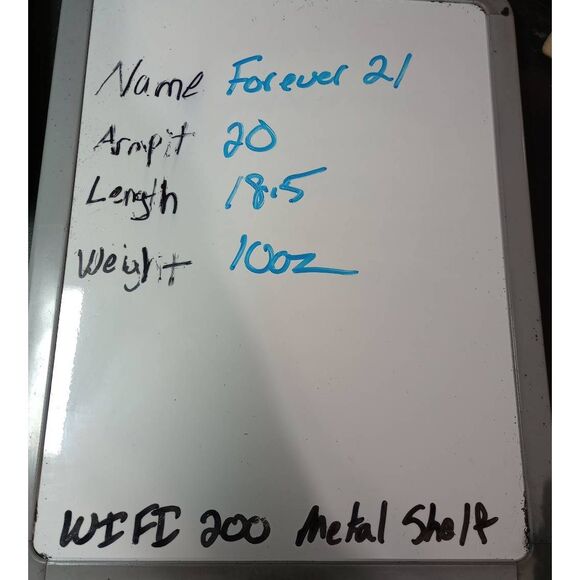 Name Forever 21
Armpit 20
Length 18.5
Weight 10oz
WIFI 200 Metal Shelf